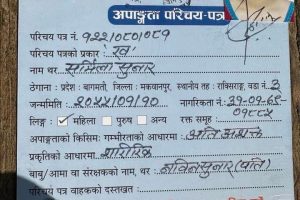 अपाङ्गता परिचय-पत्र
परिचय पत्र नं. ९२२१०८०१०८९
परिचय पत्रको प्रकार : 'ख'
नाम थर : सर्मिला सुनार
ठेगाना : प्रदेश : बागमती, जिल्ला : मकवानपुर, स्थानीय तह : राक्सिराङ्ग, वडा नं. ३
जन्ममिति : २०५५/०९/१० नागरिकता नं.: ३१-०१-६९-
०९८८५
लिङ्ग : ✓ महिला पुरुष अन्य रक्त समूह :
अपाङ्गताको किसिम: गम्भीरताको आधारमा : अति अशक्त
प्रकृतिको आधारमा : शारीरिक
बाबु/आमा वा संरक्षकको नाम, थर : नविन सुनार (पति)
परिचय पत्र वाहकको दस्तखत :